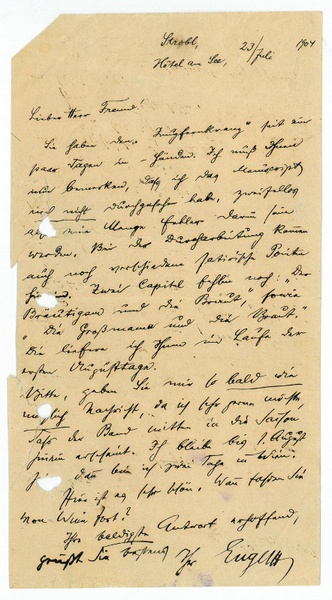 Strobl, 23/Juli 1904
Hôtel am See,
Lieber Herr Freund!
Sie haben den „Jungfernkranz" seit ein
paar Tagen in Händen. Ich muß Ihnen
nur bemerken, daß ich das Manuscript
noch nicht durchgesehen habe, zweifellos
also eine Menge Fehler darin sein
werden. Bei der Durcharbeitung kommen
auch noch verschiedene satirische Pointen
hinein. Zwei Capitel fehlen noch: „Der
Bräutigam und die Braut", sowie
„Die Großmama und die Braut".
Die liefere ich Ihnen im Laufe der
ersten Augusttage.
Bitte, geben Sie mir so bald wie
möglich Nachricht, da ich sehr gerne möchte,
daß der Band mitten in die Saison
hinein erscheint. Ich bleibe bis 1. August
dann bin ich zwei Tage in Wien.
Hier ist es sehr schön. Wann fahren Sie
von Wien fort?
Ihre baldigste Antwort erhoffend,
grüßt Sie bestens Ihr Engel